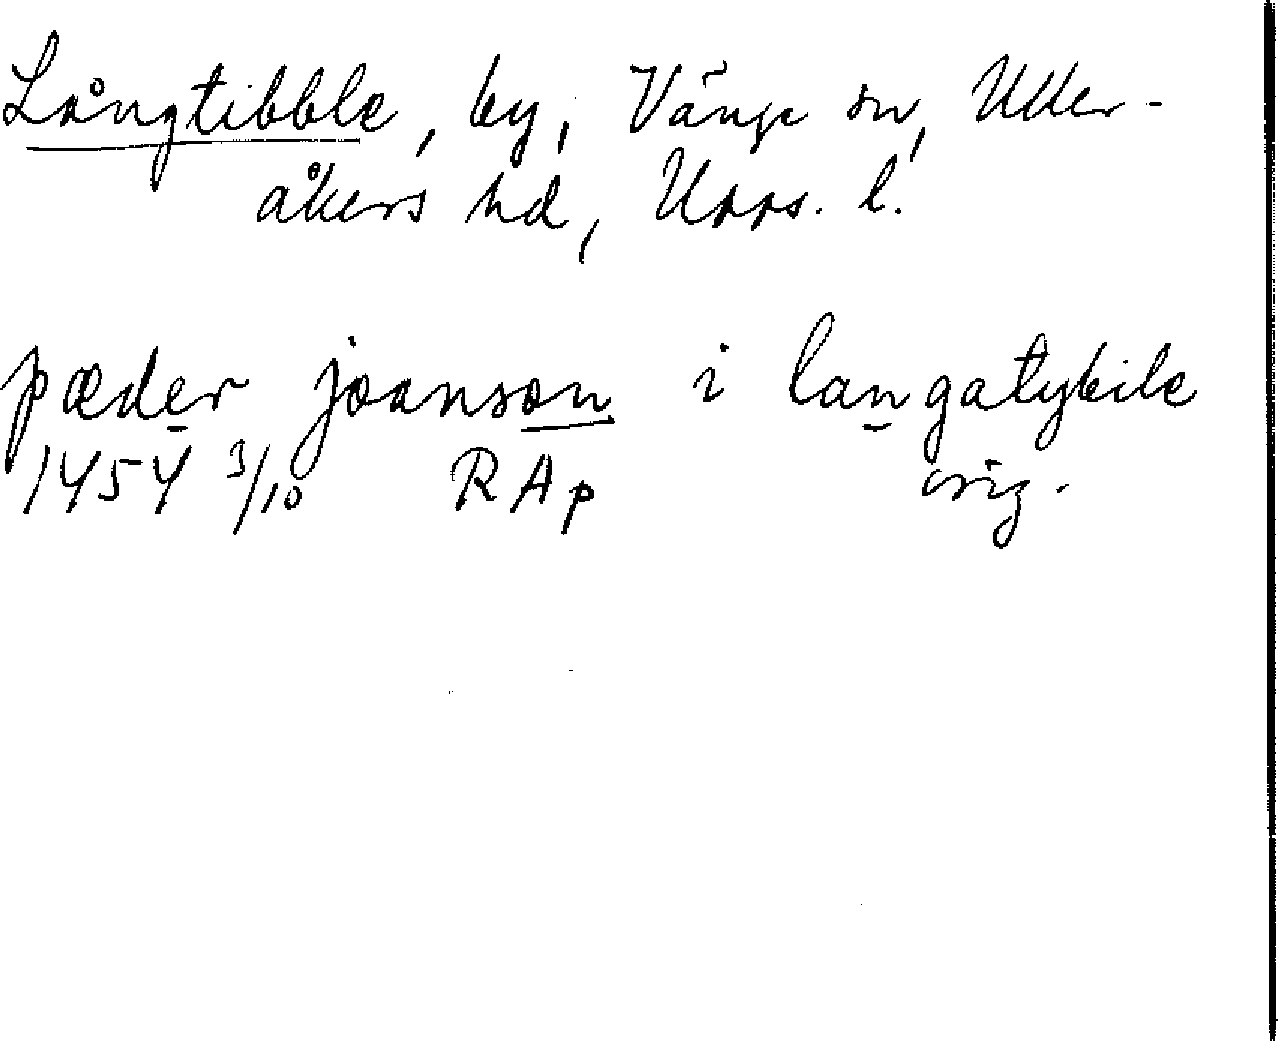 Långtibble, by, Vänge sn, Uller-
åkers hd, Upps. l.
pæder joanson i langatybile
1454 3/10 RAp orig.